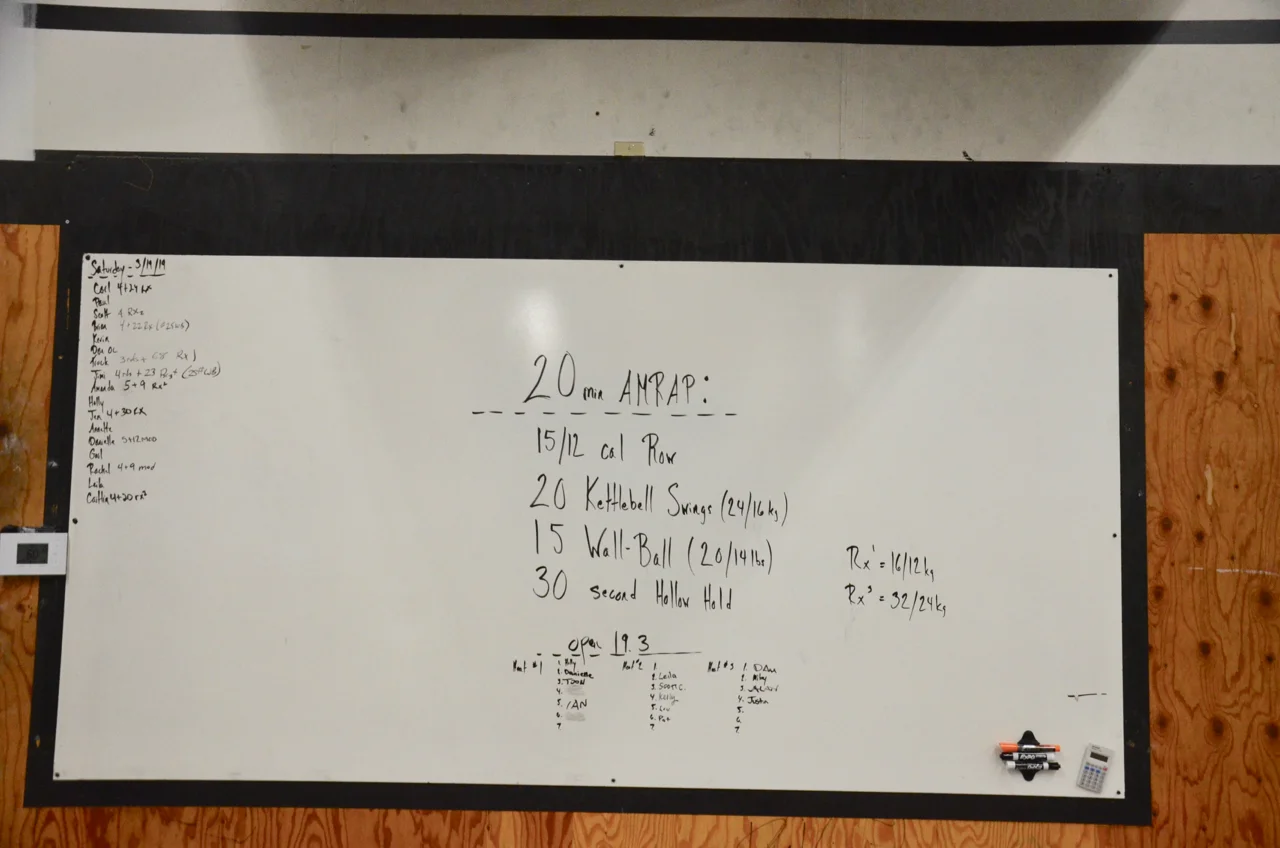 Saturday - 3/19/19
Carl 4+24 RX
Paul
Scott 4 Rx2
Brian 4+22 Rx (25WB)
Kevin
Dan OL
3rds + 65 Rx1
Jimi 4rds + 23 Rx+ (25#WB)
Amanda 5+9 Rx+
Holly
Jen 4+30 RX
Annette
Danielle 3+12 MOD
Gail
Rachel 4+9 mod
Leila
Caitlin 4+20 rx
20 min AMRAP:
15/12 cal Row
20 Kettlebell Swings (24/16 kg)
15 Wall-Ball (20/14 lbs)
30 second Hollow Hold
Rx1 = 16/12 kg
Rx3 = 32/24 kg
open 19.3
Heat #1
1.
2. Danielle
3.
4.
5. IAN
6.
7.
Heat #2
1.
2. Leila
3. Scott C.
4. Kerry
5.
6. Pat
7.
Heat #3
1. DAN
2.
3.
4. Justin
5.
6.
7.